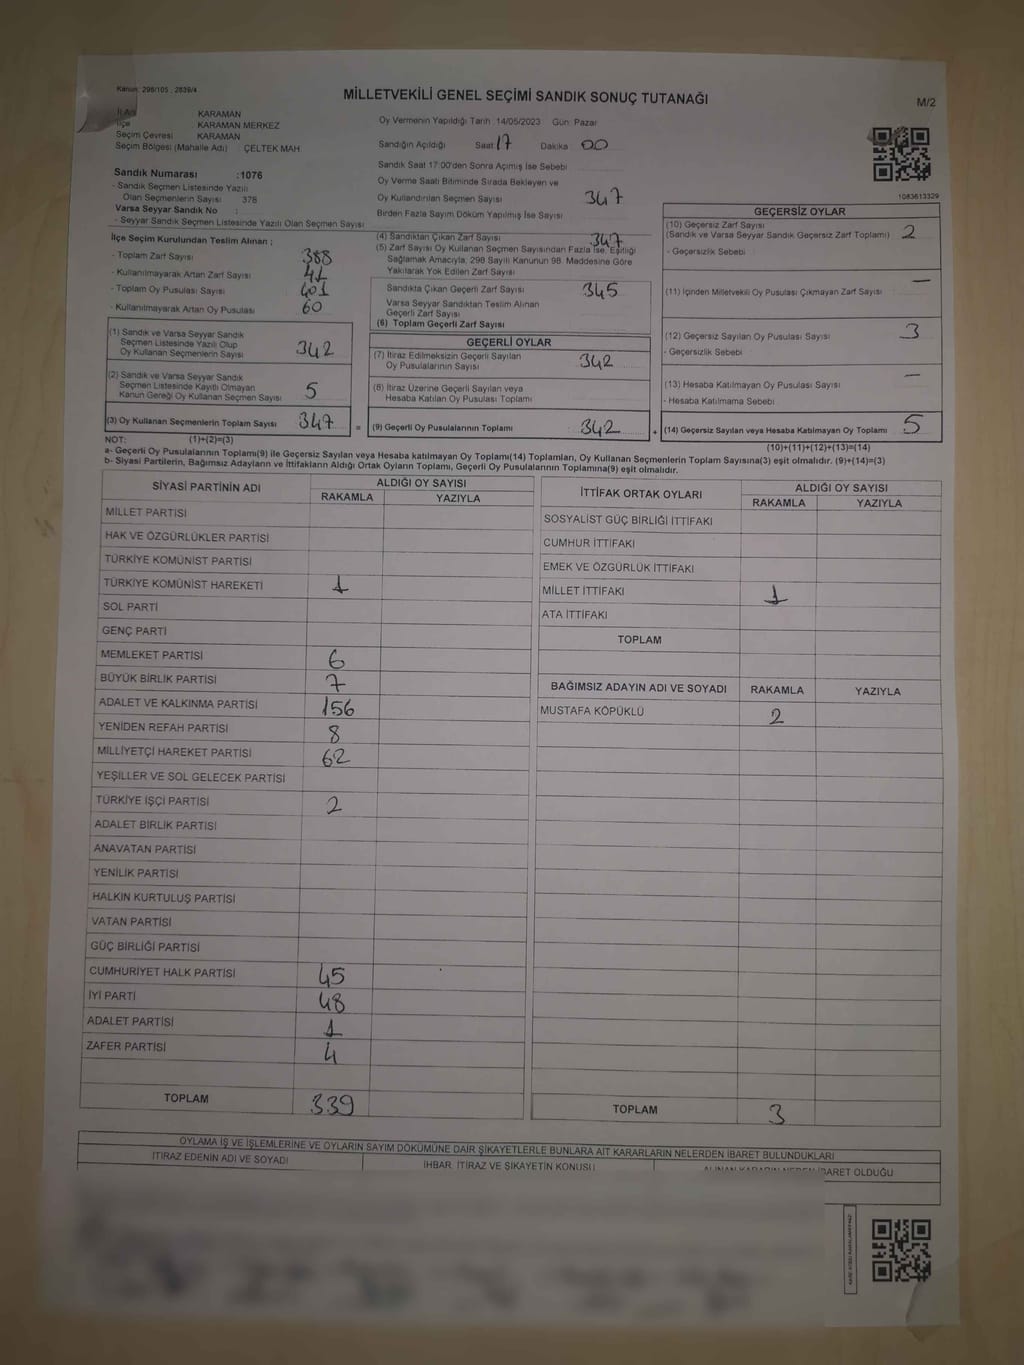 Kanun: 298/105 , 2839/4
MİLLETVEKİLİ GENEL SEÇİMİ SANDIK SONUÇ TUTANAĞI
M/2
İl Adı KARAMAN
İlçe KARAMAN MERKEZ
Seçim Çevresi KARAMAN
Seçim Bölgesi (Mahalle Adı) ÇELTEK MAH.
Oy Vermenin Yapıldığı Tarih :14/05/2023 Gün: Pazar
Sandığın Açıldığı Saat 17 Dakika 00
Sandık Saat 17:00'den Sonra Açımış İse Sebebi
Oy Verme Saati Bitiminde Sırada Bekleyen ve
Oy Kullandırılan Seçmen Sayısı 347
Birden Fazla Sayım Döküm Yapılmış İse Sayısı
1083613329
Sandık Numarası :1076
- Sandık Seçmen Listesinde Yazılı
Olan Seçmenlerin Sayısı 378
Varsa Seyyar Sandık No :
- Seyyar Sandık Seçmen Listesinde Yazılı Olan Seçmen Sayısı
İlçe Seçim Kurulundan Teslim Alınan ;
- Toplam Zarf Sayısı 388
- Kullanılmayarak Artan Zarf Sayısı 41
- Toplam Oy Pusulası Sayısı 401
- Kullanılmayarak Artan Oy Pusulası 60
(1) Sandık ve Varsa Seyyar Sandık
Seçmen Listesinde Yazılı Olup
Oy Kullanan Seçmenlerin Sayısı 342
(2) Sandık ve Varsa Seyyar Sandık
Seçmen Listesinde Kayıtlı Olmayan
Kanun Gereği Oy Kullanan Seçmen Sayısı 5
(3) Oy Kullanan Seçmenlerin Toplam Sayısı 347 =
(4) Sandıktan Çıkan Zarf Sayısı 347
(5) Zarf Sayısı Oy Kullanan Seçmen Sayısından Fazla İse, Eşitliği
Sağlamak Amacıyla, 298 Sayılı Kanunun 98. Maddesine Göre
Yakılarak Yok Edilen Zarf Sayısı
Sandıkta Çıkan Geçerli Zarf Sayısı 345
Varsa Seyyar Sandıktan Teslim Alınan
Geçerli Zarf Sayısı
(6) Toplam Geçerli Zarf Sayısı
GEÇERLİ OYLAR
(7) İtiraz Edilmeksizin Geçerli Sayılan
Oy Pusulalarının Sayısı 342
(8) İtiraz Üzerine Geçerli Sayılan veya
Hesaba Katılan Oy Pusulası Toplamı
(9) Geçerli Oy Pusulalarının Toplamı 342 +
GEÇERSİZ OYLAR
(10) Geçersiz Zarf Sayısı
(Sandık ve Varsa Seyyar Sandık Geçersiz Zarf Toplamı) 2
- Geçersizlik Sebebi
(11) İçinden Milletvekili Oy Pusulası Çıkmayan Zarf Sayısı —
(12) Geçersiz Sayılan Oy Pusulası Sayısı 3
- Geçersizlik Sebebi
(13) Hesaba Katılmayan Oy Pusulası Sayısı —
- Hesaba Katılmama Sebebi
(14) Geçersiz Sayılan veya Hesaba Katılmayan Oy Toplamı 5
NOT: (1)+(2)=(3)
(10)+(11)+(12)+(13)=(14)
a- Geçerli Oy Pusulalarının Toplamı(9) ile Geçersiz Sayılan veya Hesaba Katılmayan Oy Toplamı(14) Toplamları, Oy Kullanan Seçmenlerin Toplam Sayısına(3) eşit olmalıdır. (9)+(14)=(3)
b- Siyasi Partilerin, Bağımsız Adayların ve İttifakların Aldığı Ortak Oyların Toplamı, Geçerli Oy Pusulalarının Toplamına(9) eşit olmalıdır.
SİYASİ PARTİNİN ADI ALDIĞI OY SAYISI
RAKAMLA YAZIYLA
MİLLET PARTİSİ
HAK VE ÖZGÜRLÜKLER PARTİSİ
TÜRKİYE KOMÜNİST PARTİSİ
TÜRKİYE KOMÜNİST HAREKETİ 1
SOL PARTİ
GENÇ PARTİ
MEMLEKET PARTİSİ 6
BÜYÜK BİRLİK PARTİSİ 7
ADALET VE KALKINMA PARTİSİ 156
YENİDEN REFAH PARTİSİ 8
MİLLİYETÇİ HAREKET PARTİSİ 62
YEŞİLLER VE SOL GELECEK PARTİSİ
TÜRKİYE İŞÇİ PARTİSİ 2
ADALET BİRLİK PARTİSİ
ANAVATAN PARTİSİ
YENİLİK PARTİSİ
HALKIN KURTULUŞ PARTİSİ
VATAN PARTİSİ
GÜÇ BİRLİĞİ PARTİSİ
CUMHURİYET HALK PARTİSİ 45
İYİ PARTİ 48
ADALET PARTİSİ 1
ZAFER PARTİSİ 4
TOPLAM 339
İTTİFAK ORTAK OYLARI ALDIĞI OY SAYISI
RAKAMLA YAZIYLA
SOSYALİST GÜÇ BİRLİĞİ İTTİFAKI
CUMHUR İTTİFAKI
EMEK VE ÖZGÜRLÜK İTTİFAKI
MİLLET İTTİFAKI 1
ATA İTTİFAKI
TOPLAM
BAĞIMSIZ ADAYIN ADI VE SOYADI RAKAMLA YAZIYLA
MUSTAFA KÖPÜKLÜ 2
TOPLAM 3
OYLAMA İŞ VE İŞLEMLERİNE VE OYLARIN SAYIM DÖKÜMÜNE DAİR ŞİKAYETLERLE BUNLARA AİT KARARLARIN NELERDEN İBARET BULUNDUKLARI
İTİRAZ EDENİN ADI VE SOYADI İHBAR, İTİRAZ VE ŞİKAYETİN KONUSU ALINAN KARARIN NEDEN İBARET OLDUĞU